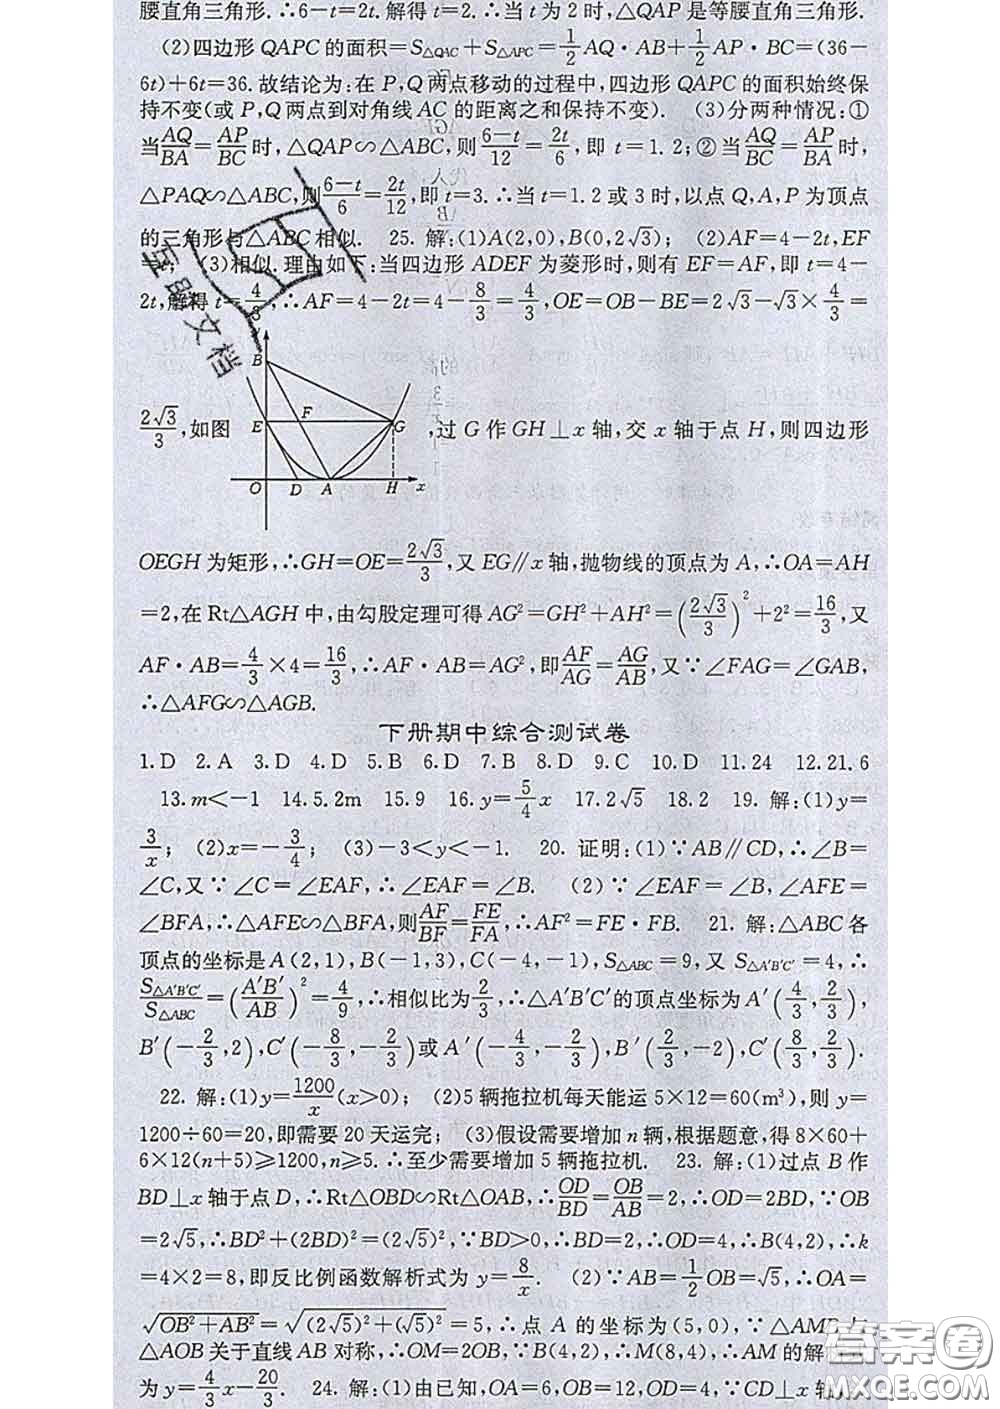 腰直角三角形. ∴6-t=2t. 解得 t=2. ∴当 t 为 2 时, △QAP 是等腰直角三角形.
(2)四边形 QAPC 的面积=S△QAC+S△APC=1/2 AQ·AB+1/2 AP·BC=(36-
6t)+6t=36. 故结论为:在 P,Q 两点移动的过程中,四边形 QAPC 的面积始终保
持不变(或 P,Q 两点到对角线 AC 的距离之和保持不变). (3)分两种情况:①
当AQ/BA=AP/BC时,△QAP∽△ABC,则(6-t)/12=2t/6,即 t=1.2;②当AQ/BC=AP/BA时,
△PAQ∽△ABC,则(6-t)/6=2t/12,即 t=3. ∴当 t=1.2 或 3 时,以点 Q,A,P 为顶点
的三角形与△ABC 相似. 25. 解:(1)A(2,0),B(0,2√3); (2)AF=4-2t,EF
=t; (3)相似. 理由如下:当四边形 ADEF 为菱形时,则有 EF=AF,即 t=4-
2t,解得 t=4/3,∴AF=4-2t=4-8/3=4/3,OE=OB-BE=2√3-√3×4/3=
2√3/3,如图 ,过 G 作 GH⊥x 轴,交 x 轴于点 H,则四边形
y B E F G O D A H x
OEGH 为矩形,∴GH=OE=2√3/3,又 EG∥x 轴,抛物线的顶点为 A,∴OA=AH
=2,在 Rt△AGH 中,由勾股定理可得 AG²=GH²+AH²=(2√3/3)²+2²=16/3,又
AF·AB=4/3×4=16/3,∴AF·AB=AG²,即AF/AG=AG/AB,又∵∠FAG=∠GAB,
∴△AFG∽△AGB.
下册期中综合测试卷
1. D 2. A 3. D 4. D 5. B 6. D 7. B 8. D 9. C 10. D 11. 24 12. 21.6
13. m<-1 14. 5.2m 15. 9 16. y=5/4 x 17. 2√5 18. 2 19. 解:(1)y=
3/x; (2)x=-3/4; (3)-3<y<-1. 20. 证明:(1)∵AB∥CD,∴∠B=
∠C,又∵∠C=∠EAF,∴∠EAF=∠B. (2)∵∠EAF=∠B,∠AFE=
∠BFA,∴△AFE∽△BFA,则AF/BF=FE/FA,∴AF²=FE·FB. 21. 解:△ABC 各
顶点的坐标是 A(2,1),B(-1,3),C(-4,-1),S△ABC=9,又 S△A′B′C′=4,∴
S△A′B′C′/S△ABC=(A′B′/AB)²=4/9,∴相似比为2/3,∴△A′B′C′的顶点坐标为 A′(4/3,2/3),
B′(-2/3,2),C′(-8/3,-2/3)或 A′(-4/3,-2/3),B′(2/3,-2),C′(8/3,2/3).
22. 解:(1)y=1200/x(x>0); (2)5 辆拖拉机每天能运 5×12=60(m³),则 y=
1200÷60=20,即需要 20 天运完; (3)假设需要增加 n 辆,根据题意,得 8×60+
6×12(n+5)≥1200,n≥5. ∴至少需要增加 5 辆拖拉机. 23. 解:(1)过点 B 作
BD⊥x 轴于点 D,∴Rt△OBD∽Rt△OAB,∴OD/BD=OB/AB=2,∴OD=2BD,∵OB
=2√5,∴BD²+(2BD)²=(2√5)²,∵BD>0,∴BD=2,∴OD=4,∴B(4,2),∴k
=4×2=8,即反比例函数解析式为 y=8/x. (2)∵AB=1/2 OB=√5,∴OA=
√(OB²+AB²)=√((2√5)²+(√5)²)=5,∴点 A 的坐标为(5,0),∵△AMB 与
△AOB 关于直线 AB 对称,∴OM=2OB,∵B(4,2),∴M(8,4),∴AM 的解
为 y=4/3 x-20/3. 24. 解:(1)由已知,OA=6,OB=12,OD=4,∵CD⊥x 轴
答案圈
MXQE.COM